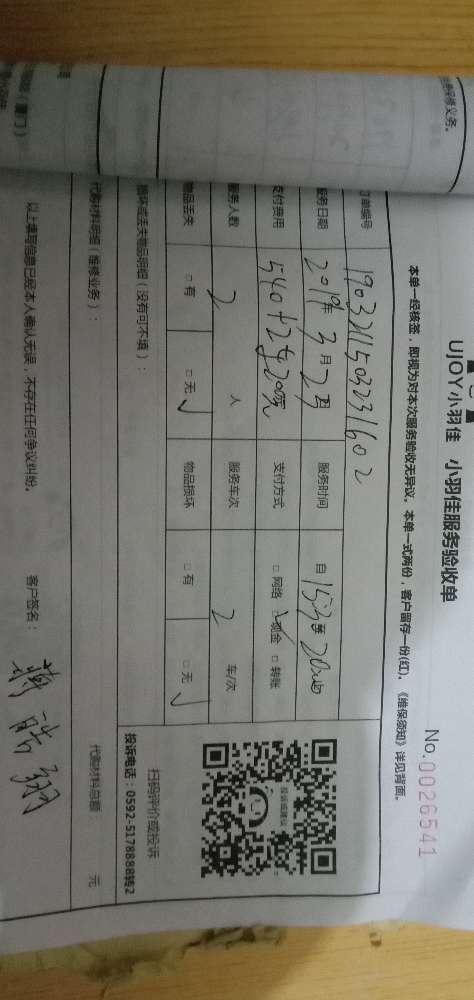 UJOY小羽佳 小羽佳服务验收单
No.0026541
本单一经核签，即视为对本次服务验收无异议。本单一式两份，客户留存一份(红)。《维保须知》详见背面。
订单编号 1903211503231602
服务日期 2019年3月2日 服务时间 自15:30至20:40
支付费用 支付方式 □网络 □现金 □转账
服务人数 2 人 服务车次 2 车/次
物品丢失 □有 □无 ✓ 物品损坏 □有 □无 ✓
损坏或丢失物品明细（没有可不填）：
扫码评价或投诉
投诉电话：0592-5178888转2
代购材料明细（维修业务）：
代购材料总额 元
以上填写信息已经本人确认无误，不存在任何争议纠纷。
客户签名：